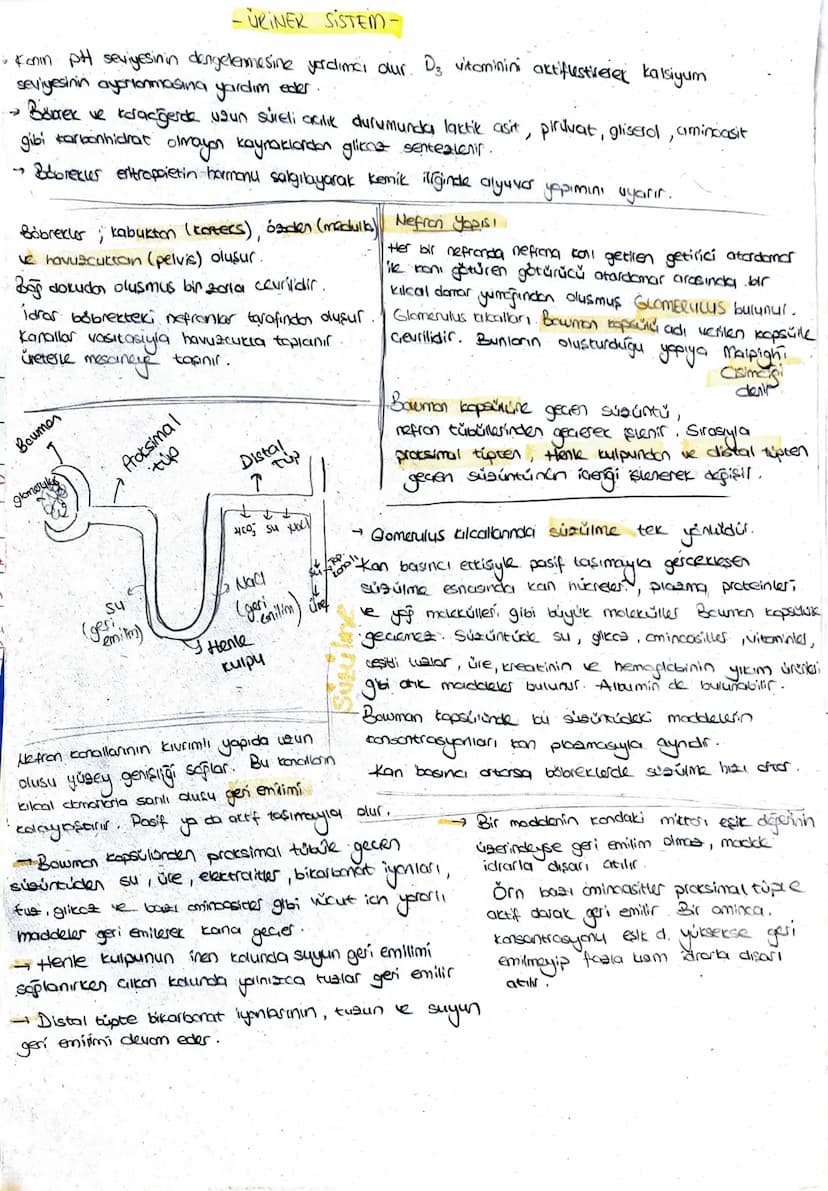 - ÜRİNER SİSTEM -
Kanın pH seviyesinin dengelenmesine yardımcı olur. D3 vitaminini aktifleştirerek kalsiyum
seviyesinin ayarlanmasına yardım eder.
→ Böbrek ve karaciğerde uzun süreli açlık durumunda laktik asit, pirüvat, gliserol, aminoasit
gibi karbonhidrat olmayan kaynaklardan glikoz sentezlenir.
→ Böbrekler eritropoietin hormonu salgılayarak kemik iliğinde alyuvar yapımını uyarır.
Böbrekler; kabuktan (korteks), özden (medulla)
ve havuzcuktan (pelvis) oluşur.
Bağ dokudan oluşmuş bir zarla çevrilidir.
İdrar böbrekteki nefronlar tarafından oluşur.
Kanallar vasıtasıyla havuzcukta toplanır.
üreterle mesaneye taşınır.
Nefron Yapısı
Her bir nefronda nefrona kanı getiren getirici atardamar
ile kanı götüren götürücü atardamar arasında bir
kılcal damar yumağından oluşmuş GLOMERULUS bulunur.
Glomerulus kılcalları Bowman kapsülü adı verilen kapsülle
çevrilidir. Bunların oluşturduğu yapıya Malpighi
Cisimciği
denir
Bowman kapsülüne geçen süzüntü,
nefron tübüllerinden geçerek işlenir. Sırasıyla
proksimal tüpten, Henle kulpundan ve distal tüpten
geçen süzüntünün içeriği işlenerek değişir.
Bowman
glomerulus
Proksimal
tüp
Distal
tüp
HCO3 su NaCl
su
(geri
emilim)
NaCl
(geri
emilim)
Henle
kulpu
su
Top.
kanalı
Üre
Süzülme
→ Glomerulus kılcallarında süzülme tek yönlüdür.
Kan basıncı etkisiyle pasif taşımayla gerçekleşen
süzülme esnasında kan hücreleri, plazma proteinleri
ve yağ molekülleri gibi büyük moleküller Bowman kapsülüne
geçemez. Süzüntüde su, glikoz, aminoasitler, vitaminler,
çeşitli tuzlar, üre, kreatinin ve hemoglobinin yıkım ürünleri
gibi atık maddeler bulunur. Albumin de bulunabilir.
Bowman kapsülünde bu süzüntüdeki maddelerin
konsantrasyonları kan plazmasıyla aynıdır.
Kan basıncı artarsa böbreklerde süzülme hızı artar.
Nefron kanallarının kıvrımlı yapıda uzun
oluşu yüzey genişliği sağlar. Bu kanalların
kılcal damarlarla sarılı oluşu geri emilimi
kolaylaştırır. Pasif ya da aktif taşımayla olur.
→ Bowman kapsülünden proksimal tübüle geçen
süzüntüden su, üre, elektrolitler, bikarbonat iyonları,
tuz, glikoz ve bazı aminoasitler gibi vücut için yararlı
maddeler geri emilerek kana geçer.
→ Henle kulpunun inen kolunda suyun geri emilimi
sağlanırken çıkan kolunda yalnızca tuzlar geri emilir
→ Distal tüpte bikarbonat iyonlarının, tuzun ve suyun
geri emilimi devam eder.
→ Bir maddenin kandaki miktarı eşik değerinin
üzerindeyse geri emilim olmaz, madde
idrarla dışarı atılır.
Örn bazı aminoasitler proksimal tüpte
aktif olarak geri emilir. Bir aminoa.
konsantrasyonu eşik d. yüksekse geri
emilmeyip fazla kısım idrarla dışarı
atılır.